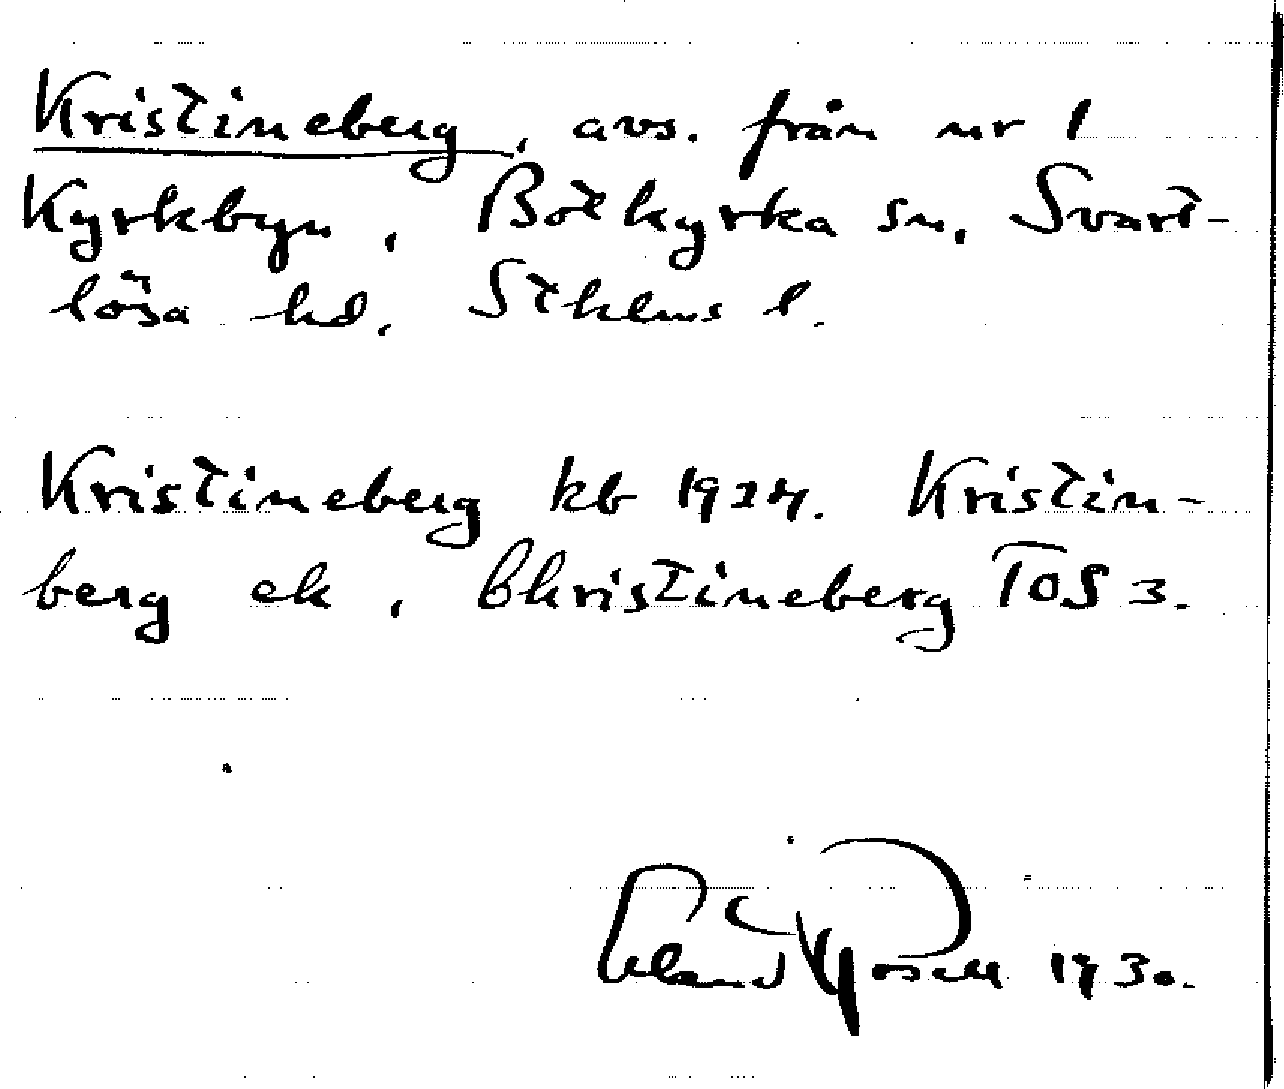 Kristineberg, avs. från nr 1
Kyrkbyn, Botkyrka sn, Svart-
lösa hd, Sthlms l.
Kristineberg kb 1924. Kristin-
berg ek, Christineberg TOS 3.
1930.